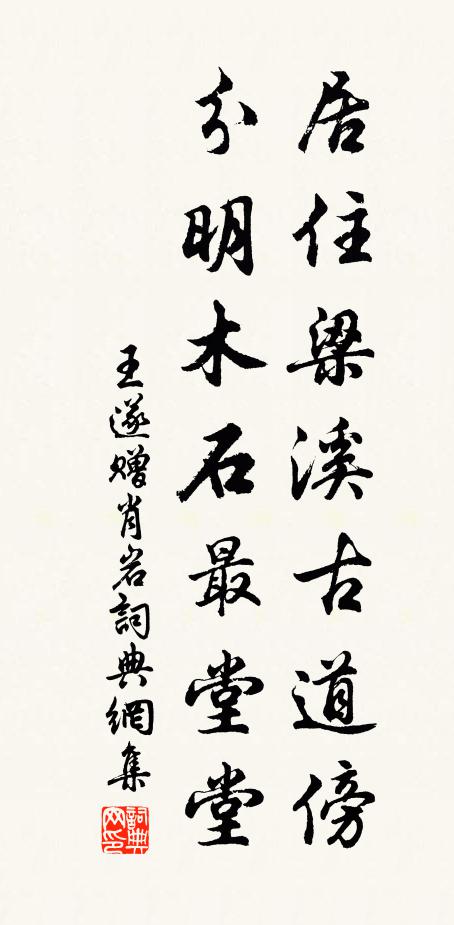 居住梁溪古道傍
分明木石最堂堂
王遂贈肖岩詞典網集
詞典网印